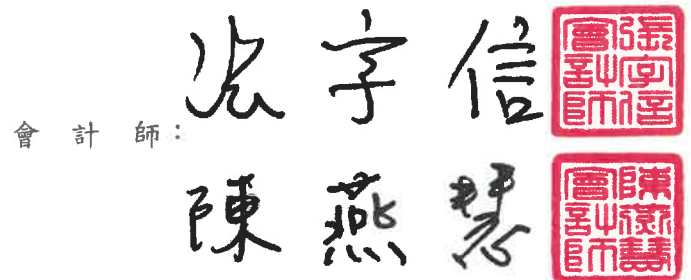 會計師：
張字信
張字信
會計師
陳燕慧
陳燕慧
會計師